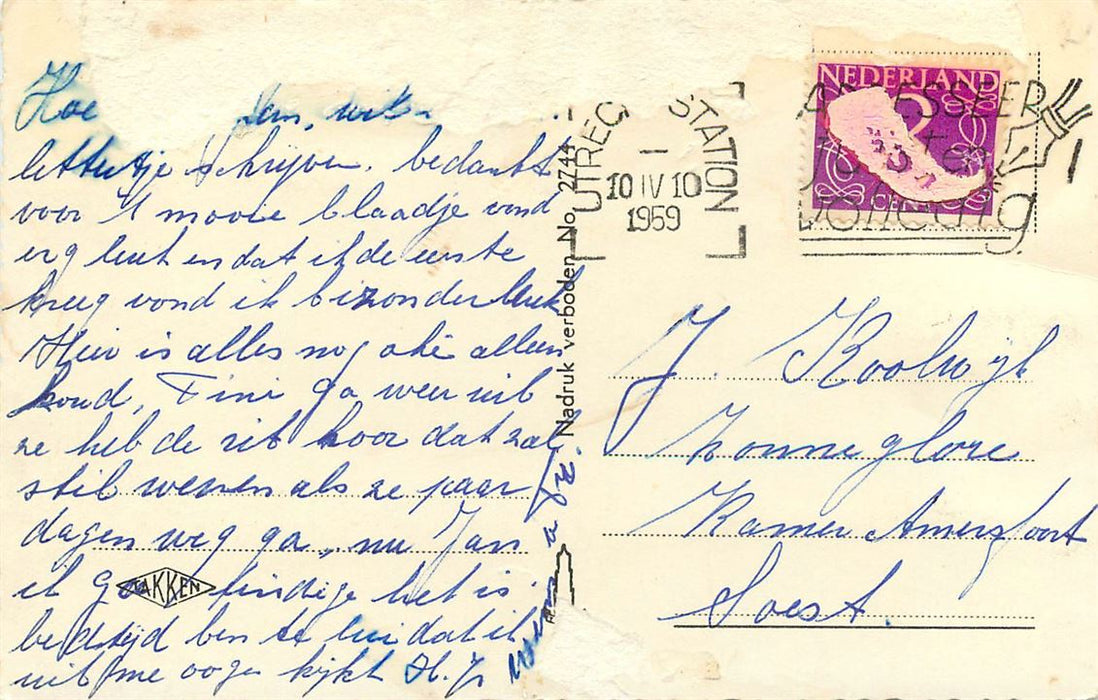 Hoe Jan, wil
lettertje schrijven. bedankt
voor 't mooie blaadje vond
erg leuk en dat ik de eerste
kreeg vond ik bizonder leuk
Hier is alles nog oké alleen
koud, Fini ga weer uit
ze heb de rit hoor dat zal
stil wessen als ze paar
dagen weg ga, nu Jan
ik Ga eindige het is
bedtijd ben te lui dat ik
uit me ooge kijkt H. Jr
TAKKEN
Nadruk verboden No. 2744
UTRECHT STATION
10 IV 10
1959
NEDERLAND
CENT
ADRESSEER
juist en
volledig
J. Koolwijk
Zonneglore
Kamer Amersfoort
Soest.